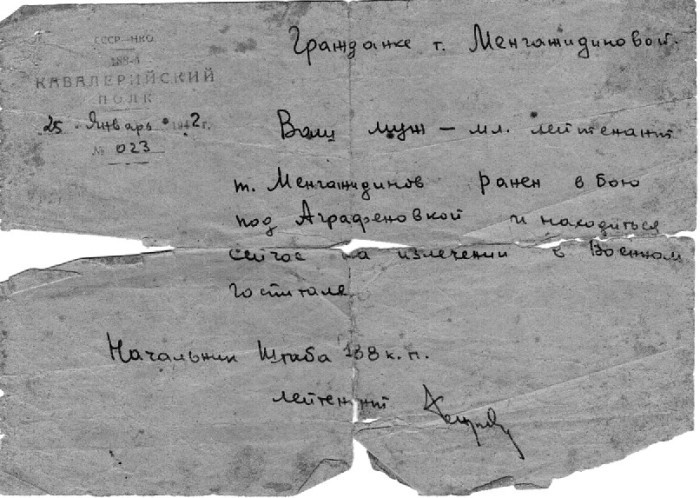 СССР-НКО
188-й
КАВАЛЕРИЙСКИЙ
ПОЛК
25 Январь 1942г.
№ 023
Гражданке т. Менгажидиновой.
Ваш муж - мл. лейтенант
т. Менгажидинов ранен в бою
под Аграфеновкой и находиться
сейчас на излечении в Военном
госпитале.
Начальник Штаба 188 к.п.
лейтенант